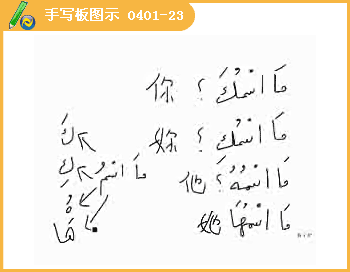 手写板图示 0401-23
你 ؟ مَا اسْمُكَ
妳 ؟ مَا اسْمُكِ
他 ؟ مَا اسْمُهُ
她 مَا اسْمُهَا
كَ
كِ مَا اسْمُ
هُ
هَا